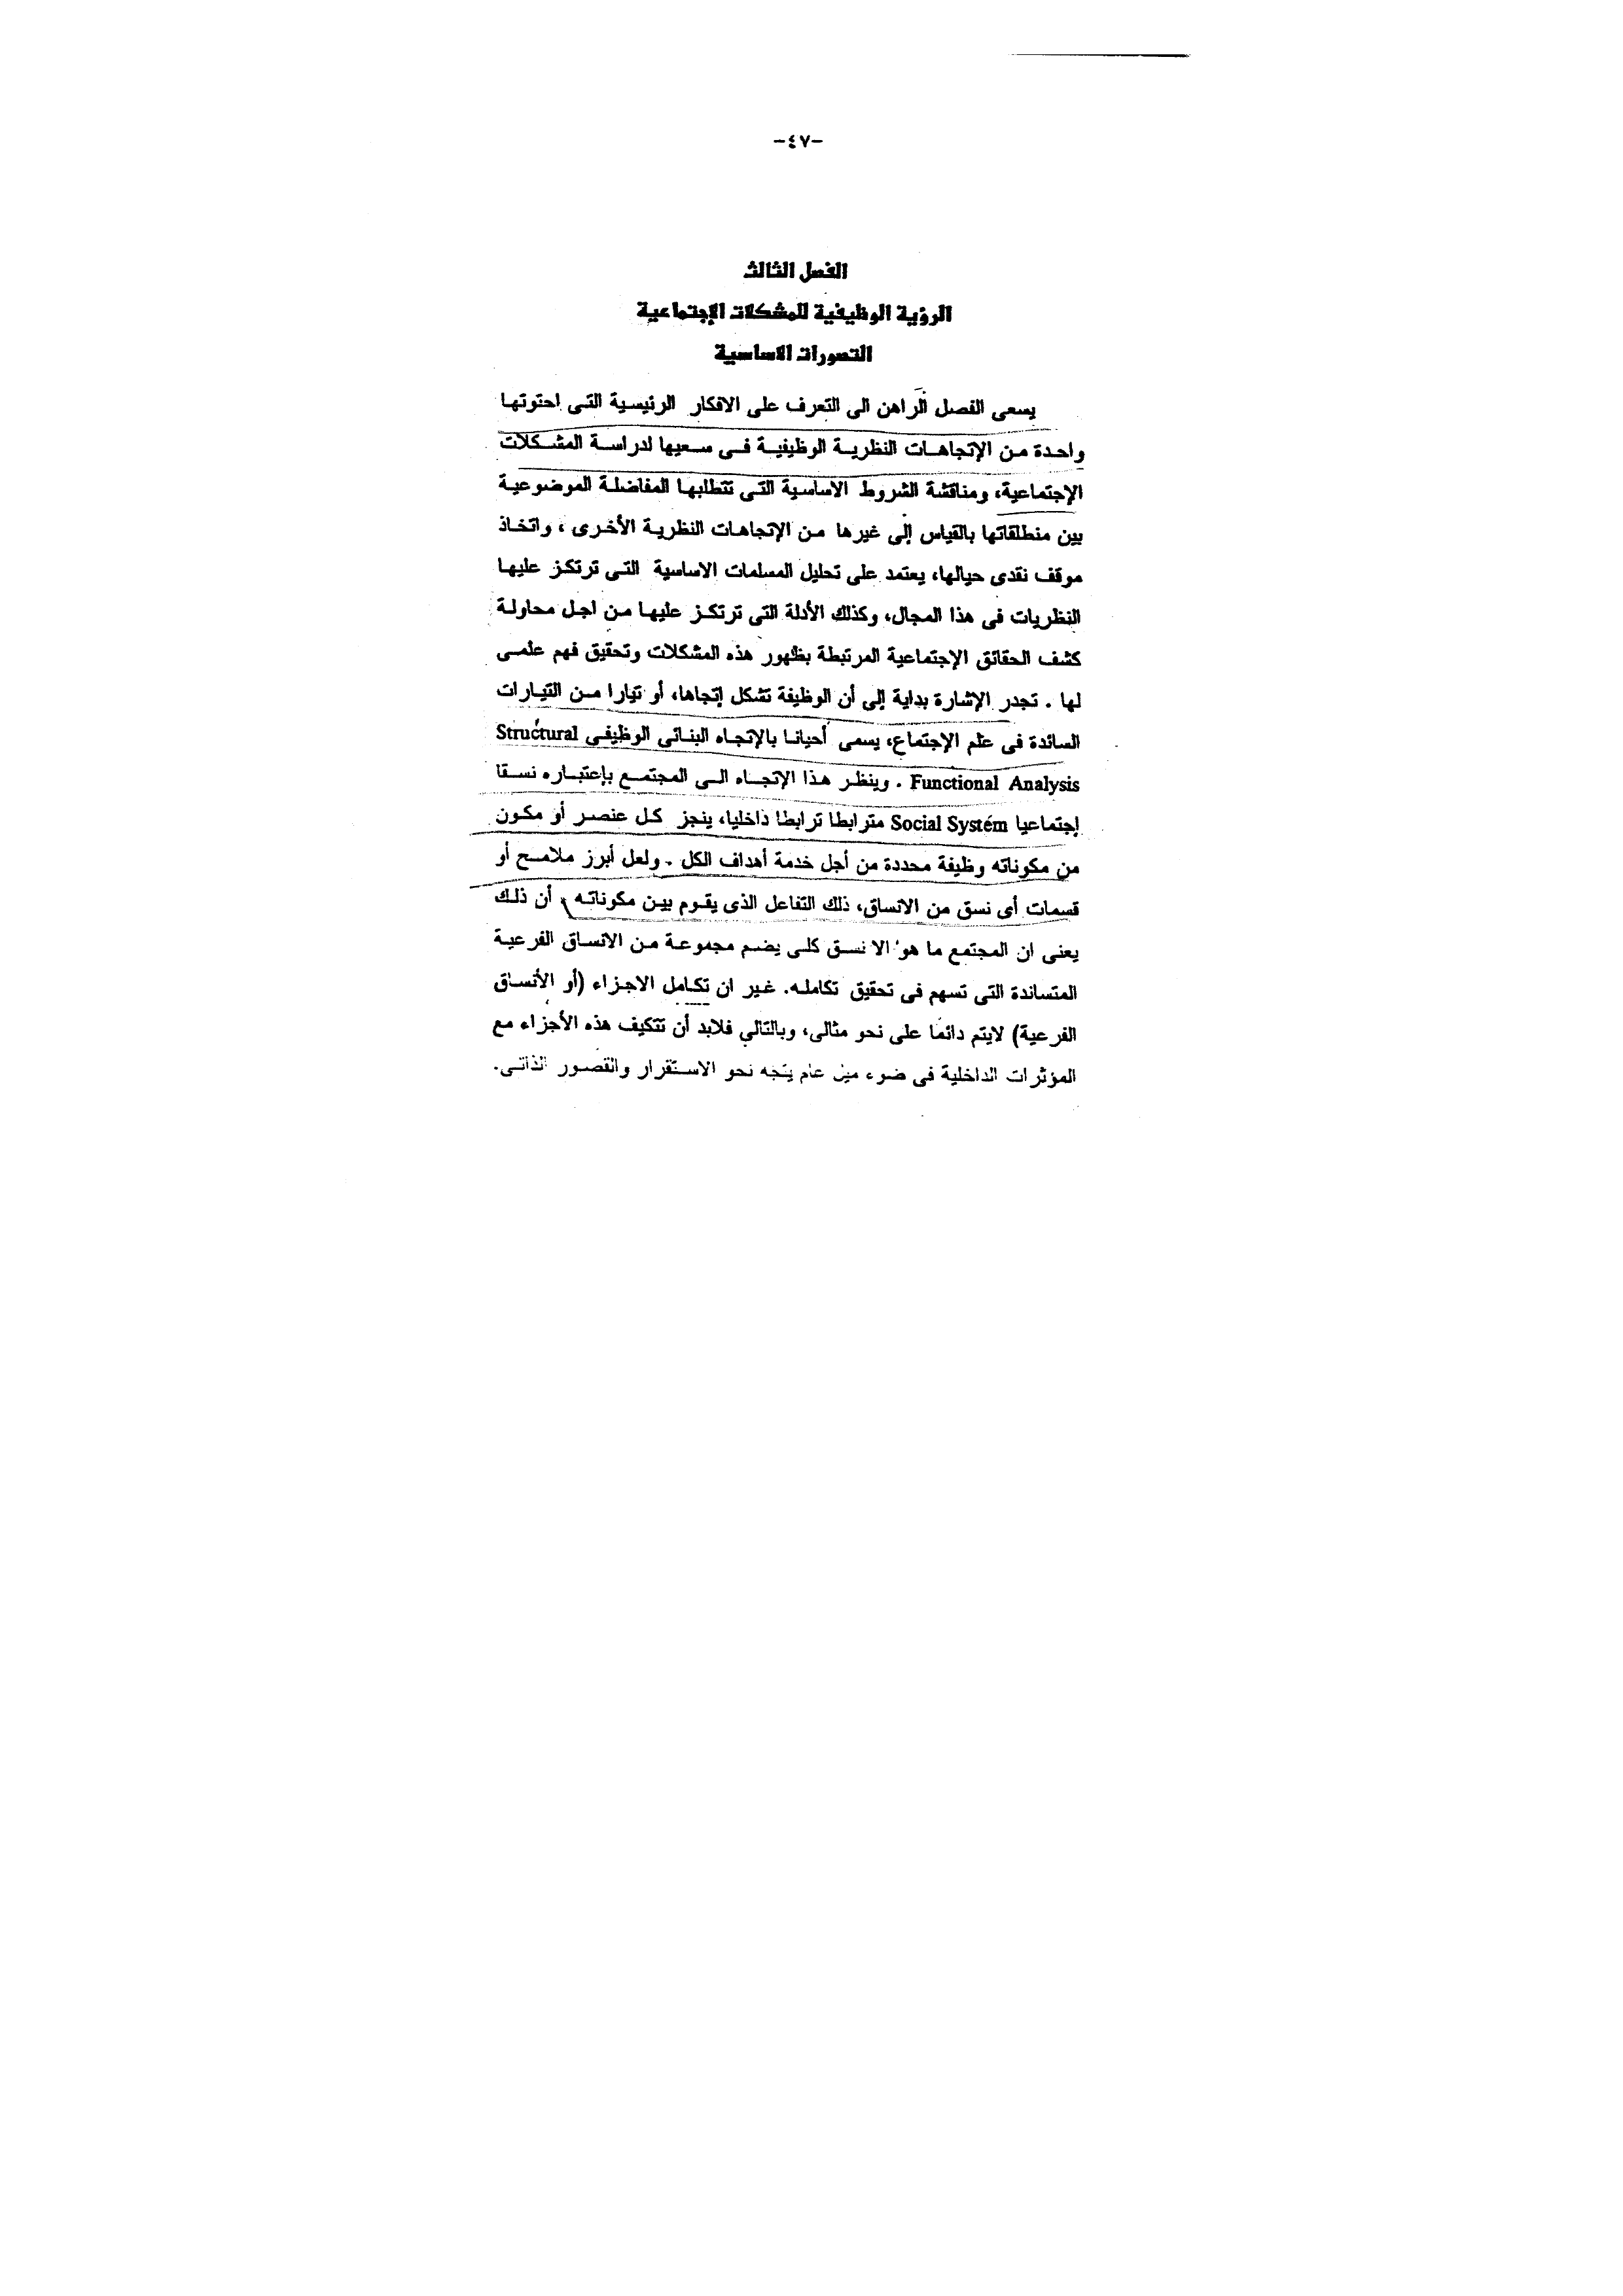 -٤٧-
الفصل الثالث
الرؤية الوظيفية للمشكلات الإجتماعية
التصورات الاساسية
يسعى الفصل الراهن الى التعرف على الافكار الرئيسية التى احتوتها
واحدة من الإتجاهات النظرية الوظيفية فى سعيها لدراسة المشكلات
الإجتماعية، ومناقشة الشروط الاساسية التى تتطلبها المفاضلة الموضوعية
بين منطلقاتها بالقياس إلى غيرها من الإتجاهات النظرية الأخرى ، واتخاذ
موقف نقدى حيالها، يعتمد على تحليل المسلمات الاساسية التى ترتكز عليها
النظريات فى هذا المجال، وكذلك الأدلة التى ترتكز عليها من اجل محاولة
كشف الحقائق الإجتماعية المرتبطة بظهور هذه المشكلات وتحقيق فهم علمى
لها . تجدر الإشارة بداية إلى أن الوظيفة تشكل إتجاها، أو تيارا من التيارات
السائدة فى علم الإجتماع، يسمى أحيانا بالإتجاه البنائى الوظيفى Structural
Functional Analysis . وينظر هذا الإتجاه الى المجتمع بإعتباره نسقا
إجتماعيا Social System مترابطا ترابطا داخليا، ينجز كل عنصر أو مكون
من مكوناته وظيفة محددة من أجل خدمة أهداف الكل . ولعل أبرز ملامح أو
قسمات أى نسق من الانساق، ذلك التفاعل الذى يقوم بين مكوناته، أن ذلك
يعنى ان المجتمع ما هو الا نسق كلى يضم مجموعة من الانساق الفرعية
المتساندة التى تسهم فى تحقيق تكامله. غير ان تكامل الاجزاء (أو الأنساق
الفرعية) لايتم دائما على نحو مثالى، وبالتالي فلابد أن تتكيف هذه الأجزاء مع
المؤثرات الداخلية فى ضوء ميل عام يتجه نحو الاستقرار والقصور الذاتى.